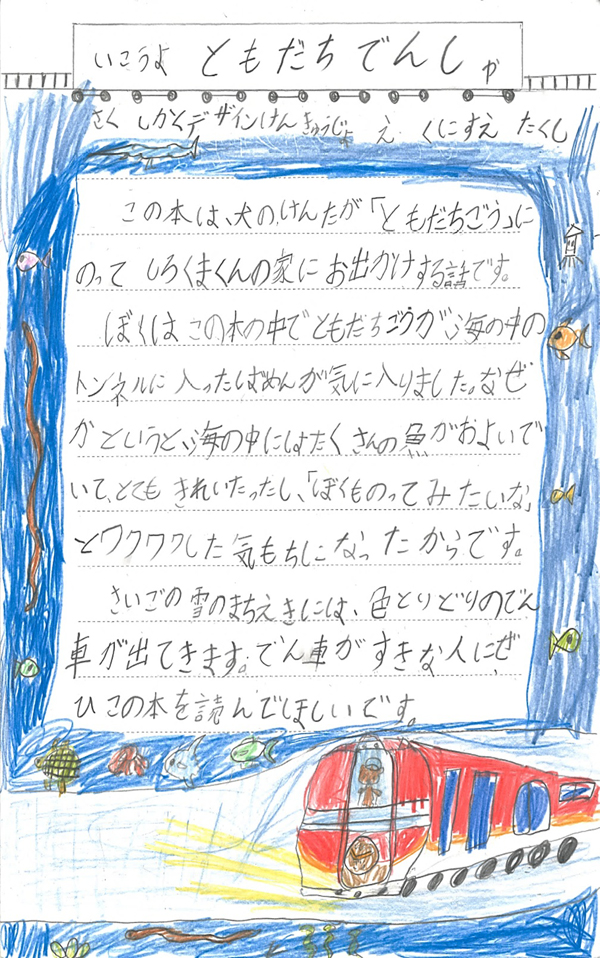 いこうよ ともだちでんしゃ
さく しかくデザインけんきゅうじょ え くにすえ たくし
この本は、犬のけんたが「ともだちごう」に
のって しろくまくんの家に お出かけする話です。
ぼくは この本の中で ともだちごうが、海の中の
トンネルに 入ったばめんが気に入りました。なぜ
かというと、海の中には たくさんの魚が およいで
いて、とても きれいたったし、「ぼくものってみたいな」
とワクワクした気もちになったからです。
さいごの雪のまちえきには、色とりどりのでん
車が出てきます。でん車がすきな人にぜ
ひこの本を読んでほしいです。